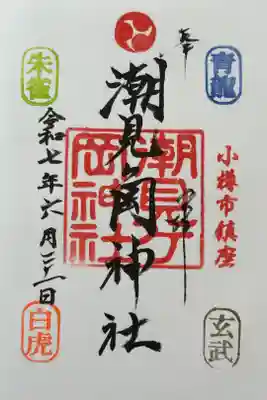 青龍
奉拝
小樽市鎮座
玄武
潮見ヶ岡神社
潮見ヶ岡神社
朱雀
令和七年六月 日
白虎